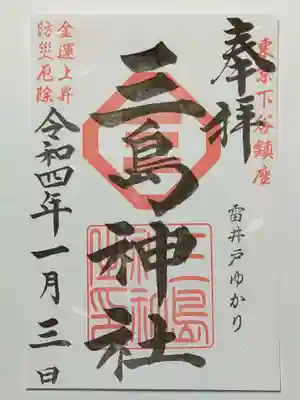 奉拝
東京下谷鎮座
雷井戸ゆかり
三島神社
金運上昇
防災厄除
令和四年一月三日